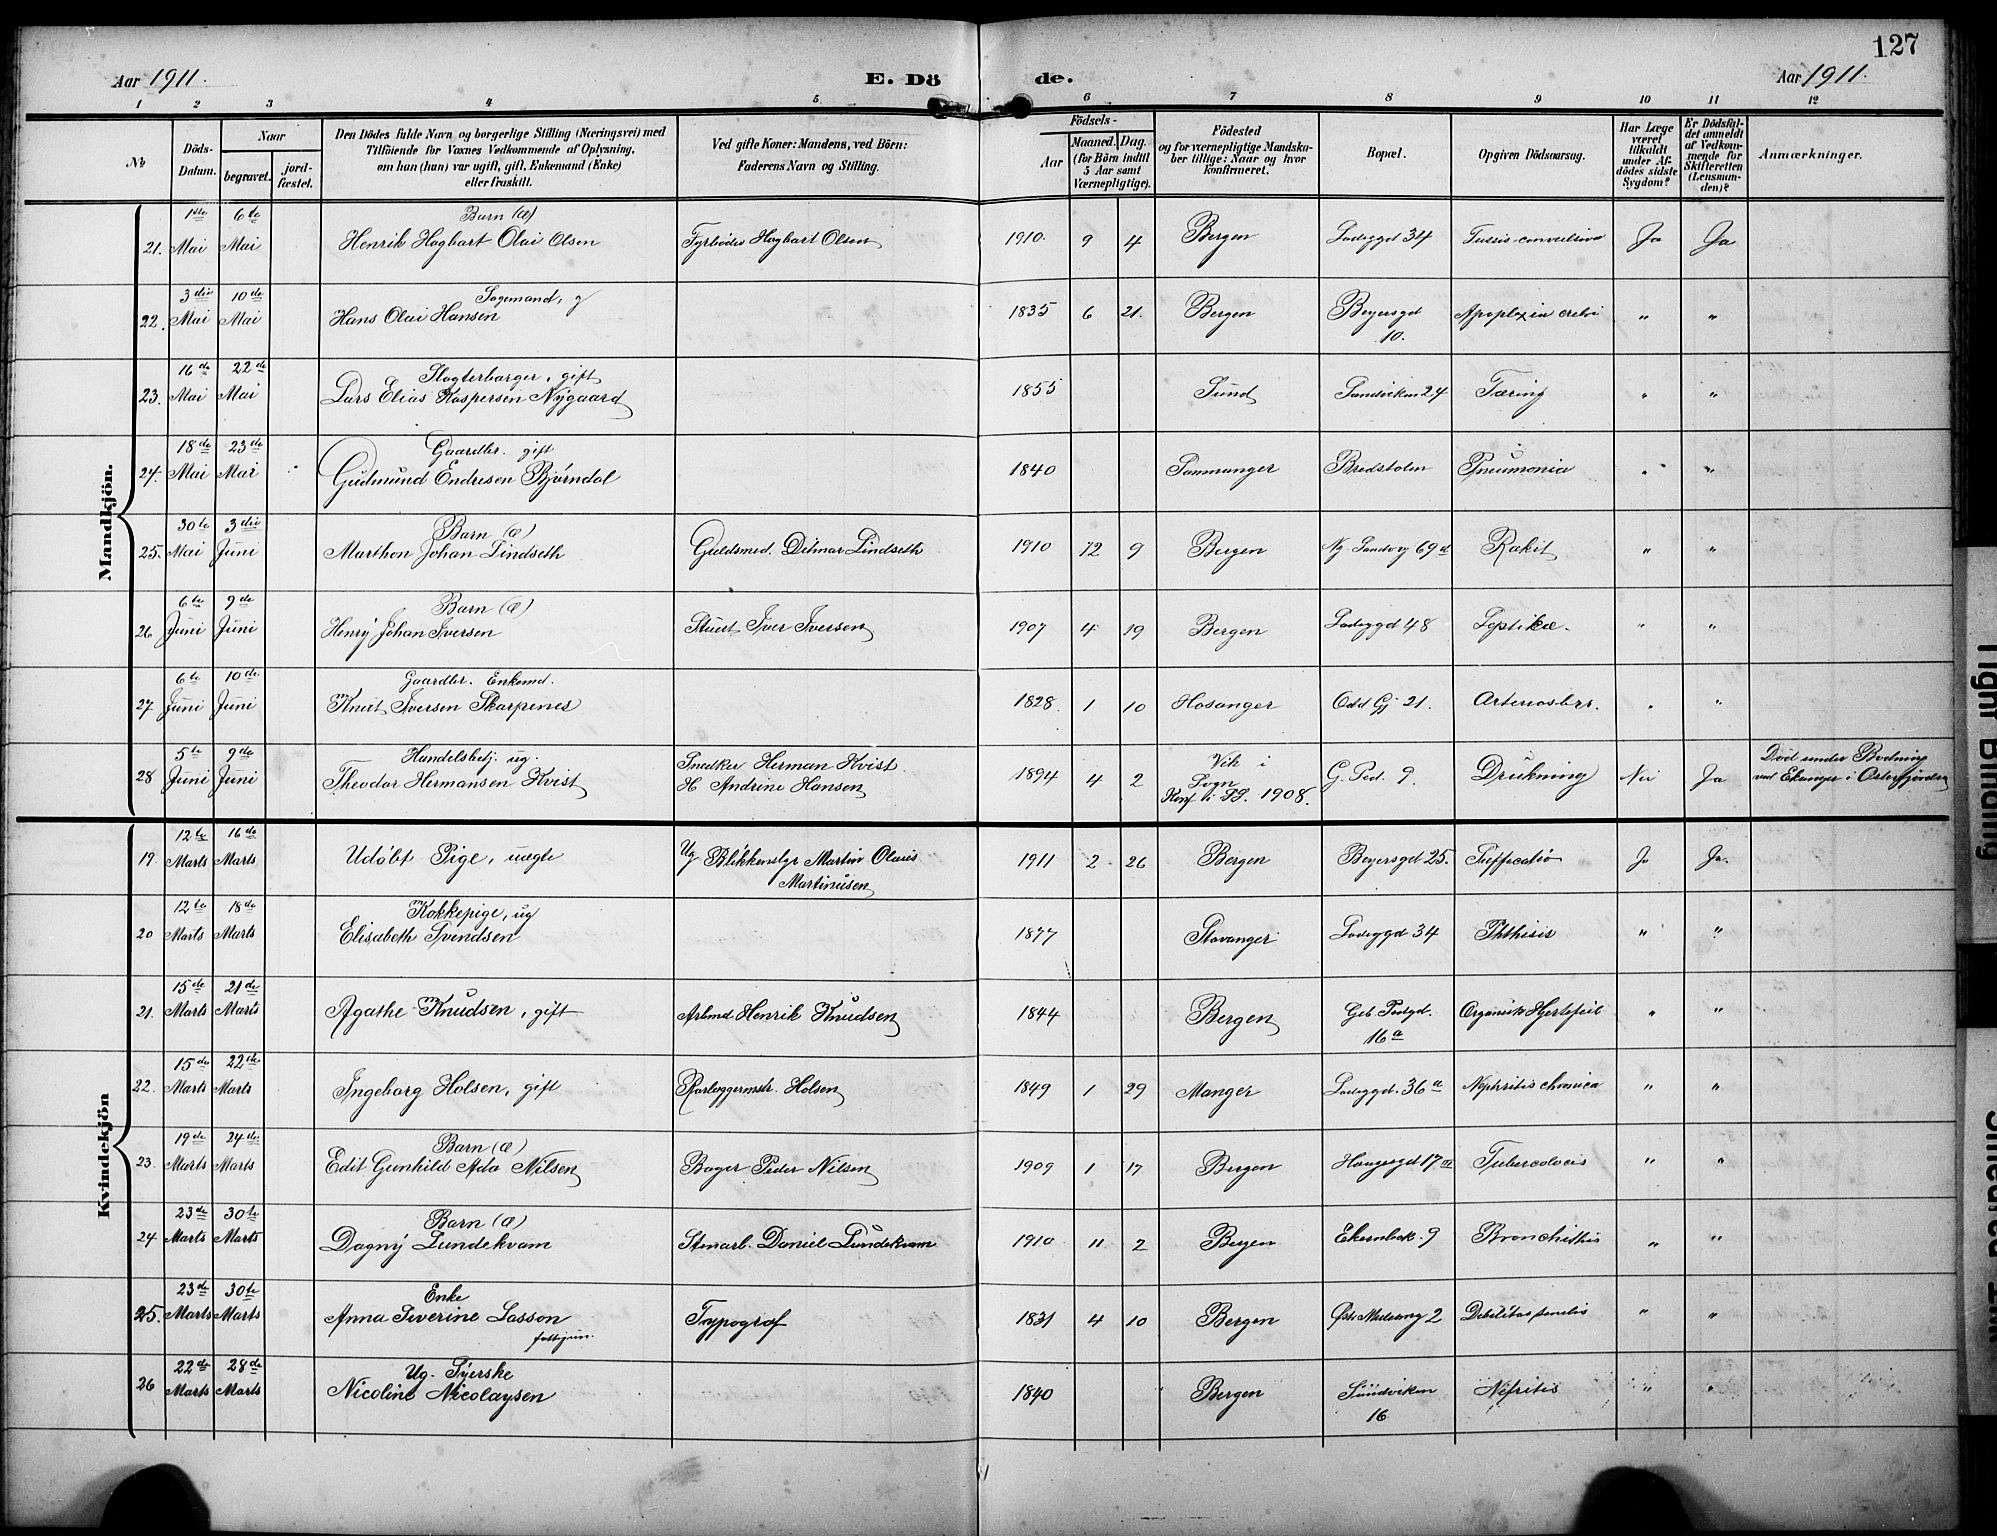 127
Aar 1911.
E. Dö
de.
Aar 1911.
1 2 3 4 5 6 7 8 9 10 11 12
No
Döds-Datum.
Naar
begravet.
jord-fæstet.
Den Dödes fulde Navn og borgerlige Stilling (Næringsvei) med
Tilföiende for Voxnes Vedkommende af Oplysning,
om han (hun) var ugift, gift, Enkemand (Enke)
eller fraskilt.
Ved gifte Koner: Mandens, ved Börn:
Faderens Navn og Stilling.
Födsels-
Aar
Maaned. Dag.
(for Börn indtil
5 Aar samt
Værnepligtige).
Födested
og for værnepligtige Mandska-
ber tillige: Naar og hvor
konfirmeret.
Bopæl.
Opgiven Dödsaarsag.
Har Læge
været
tilkaldt
under Af-
dödes sidste
Sygdom?
Er Dödsfal-
det anmeldt
af Vedkom-
mende for
Skifteretten
(Lensman-
den)?
Anmærkninger.
Mandkjön.
1ste 6te Barn (æ)
21. Mai Mai Henrik Hagbart Olai Olsen Fyrböder Hagbart Olsen 1910. 9 4 Bergen Ladeggd 34 Tussis convulsiva Ja Ja
3die 10de
22. Mai Mai Hans Olai Hansen 1835 6 21. Bergen Beyersgd 10. " "
16de 22de gift
23. Mai Mai Lars Elias Kaspersen Nygaard 1855 Sund Sandviken 24 Tæring " "
18de 23de Gaardbr. gift
24. Mai Mai Gudmund Endresen Björndal 1840 Samnanger Bredstolen Pneumonia " "
30te 3die Barn (æ)
25. Mai Juni Marthon Johan Lindseth Guldsmed. Ditmar Lindseth 1910 12 9 Bergen Ny Sandvg 69d Rakit " "
6te 9de Barn (æ)
26 Juni Juni Henry Johan Iversen Stuert Iver Iversen 1907 4 19 Bergen Ladeggd 48 " "
6te 10de Gaardbr. Enkemd.
27 Juni Juni Knut Iversen Skarpenes 1828 1 10 Hosanger Odd Gj 21. " "
5te 9de Handelsbetj. ug.
28 Juni Juni Theodor Hermansen Kvist Snedker Herman Kvist.
H Andrine Hansen 1894 4 2 Vik i
Sogn
Konf i SS. 1908. G. Ped. 9. Drukning Nei Ja Död under Bedning
ved Ekanger i Osterfjorden
Kvindekjön
12te 16de
19. Marts Marts Udöbt Pige, uægte Ug Blikkenslgr Martin Olaus
Martinusen 1911 2 26 Bergen Beyersgd 25. Suffocatio Ja Ja.
12te 18de Kokkepige, ug
20 Marts Marts Elisabeth Svendsen 1877 Stavanger Ladeggd 34 Phthisis " "
15de 21de
21. Marts Marts Agathe Knudsen, gift Arbmd Henrik Knudsen 1844 Bergen 16a Organisk Hjertefeil " "
15de 22de
22. Marts Marts Ingeborg Holsen, gift Rorleggermstr. Holsen 1849 1 29 Manger Ladeggd. 36a Nephritis chronica " "
19de 24de Barn (æ)
23. Marts Marts Edit Gunhild Ada Nilsen Bager Peder Nilsen 1909 1 17 Bergen Haugegd 17 Tuberculosis " "
23de 30te Barn (æ)
24 Marts Marts Dagny Lundekvam Stenarb. Daniel Lundekvam 1910 11 2 Bergen Ekernbak. 9 Bronchithis " "
23de 30te Enke
25. Marts Marts Anna Severine Sasson Typograf 1831 4 10 Bergen Debilitas senilis " "
22de 28de Ug. Syerske
26 Marts Marts Nicoline Nicolaysen 1840 Bergen Sandviken
16 Nefritis " "
Tight Binding